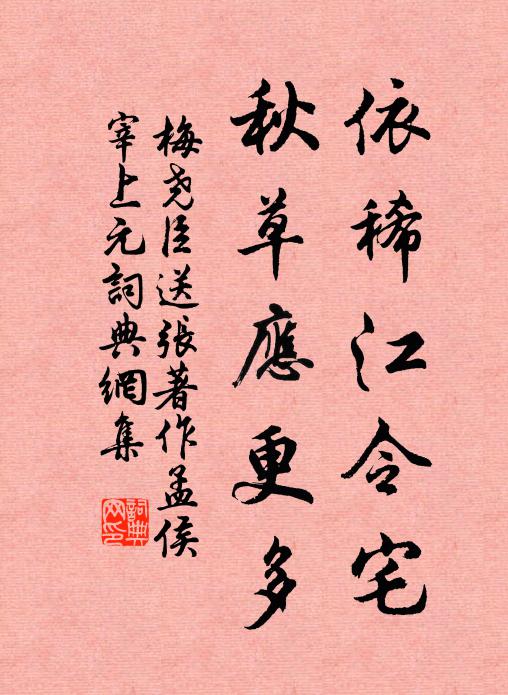 依稀江令宅
秋草應更多
梅堯臣送張著作孟侯
宰上元詞典網集
詞典网印